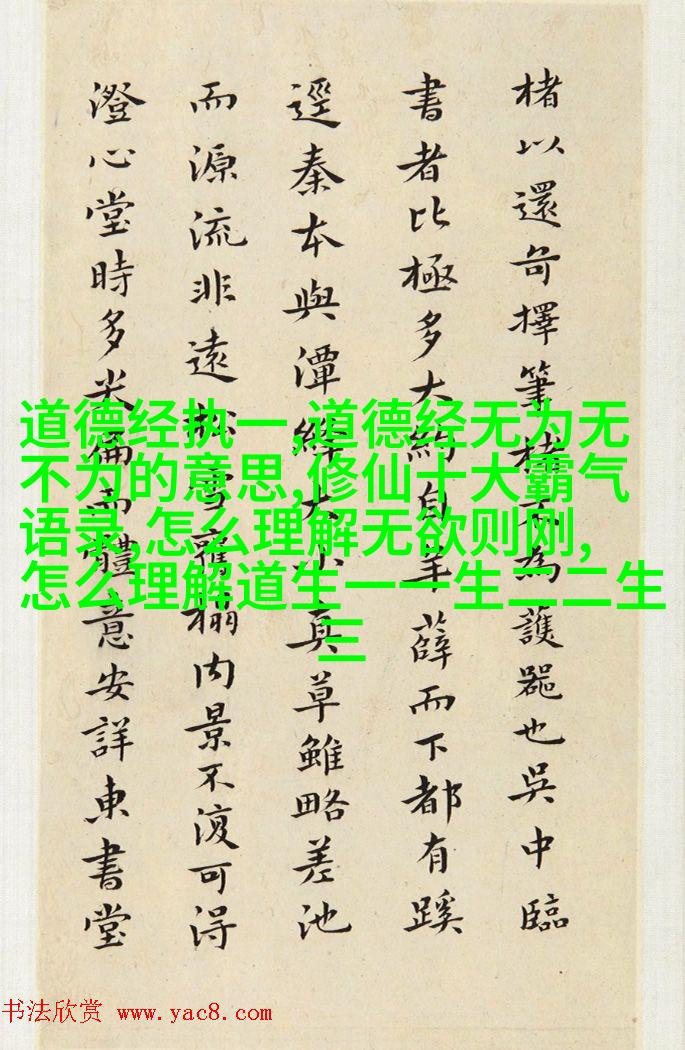 楮以還奇擇筆楮不為護嚣也吳中臨
書者比極多大約自羊薛而下都有蹊
逕秦本與潭絳大小真草雖略差池
而源流非遠松雪舊榻内景不復可得
澄心堂時多米偏而體意安詳東書堂
道德经执一,道德经无为无
不为的意思,修仙十大霸气
语录,怎么理解无欲则刚,
怎么理解道生一一生二二生
三
书法欣赏 www.yac8.com